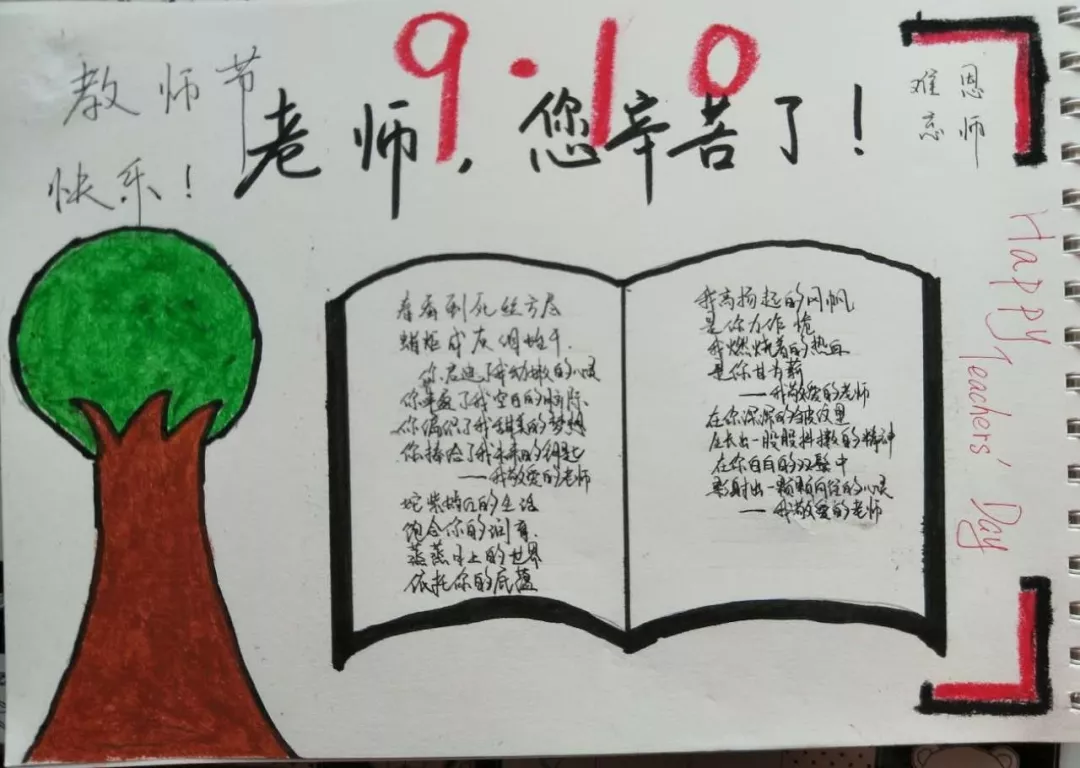 9·10
教师节
快乐！
老师，您辛苦了！
恩师
难忘
Happy Teachers' Day
春蚕到死丝方尽
蜡炬成灰泪始干.
你启迪了我幼嫩的心灵
你丰盈了我空白的脑际
你编织了我甜美的梦想
你捧给了我未来的钥匙
——我敬爱的老师
的生活
饱含你的润育.
蒸蒸日上的世界
依托你的底蕴
我高扬起的风帆
是你力作桅
我燃烧着的热血
是你甘为薪
——我敬爱的老师
在你深深的皱纹里
生长出一股股抖擞的精神
在你白白的双鬓中
影射出一颗颗向往的心灵
——我敬爱的老师